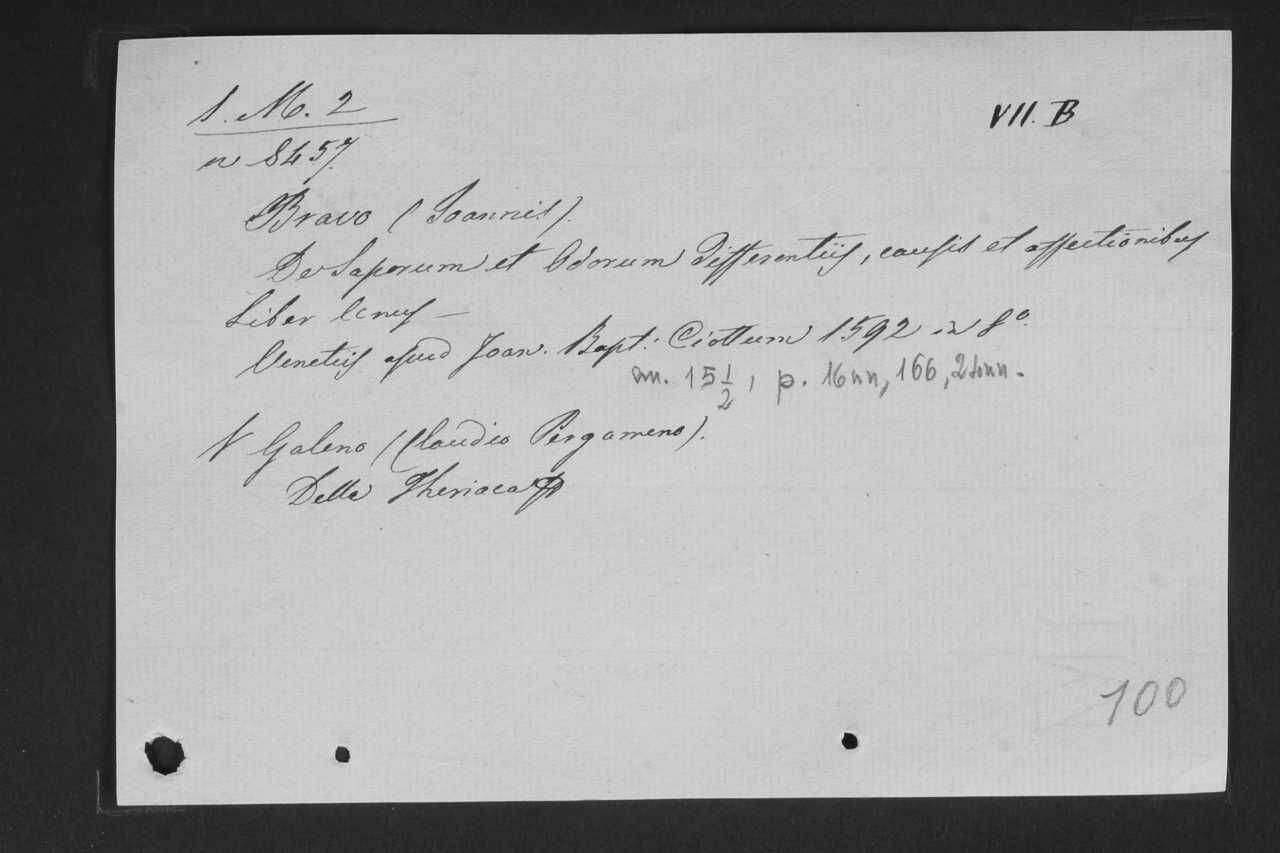 S. M. 2
VII. B
n 8457.
Bravo (Joannis).
De Saporum et Odorum differentiis, causis et affectionibus
Liber Unus —
Venetiis apud Joan. Bapt: Ciottum 1592 in 8º.
m. 15 1/2, p. 16 nn, 166, 2 nn.
V Galeno (Claudio Pergameno).
Della Theriaca
100